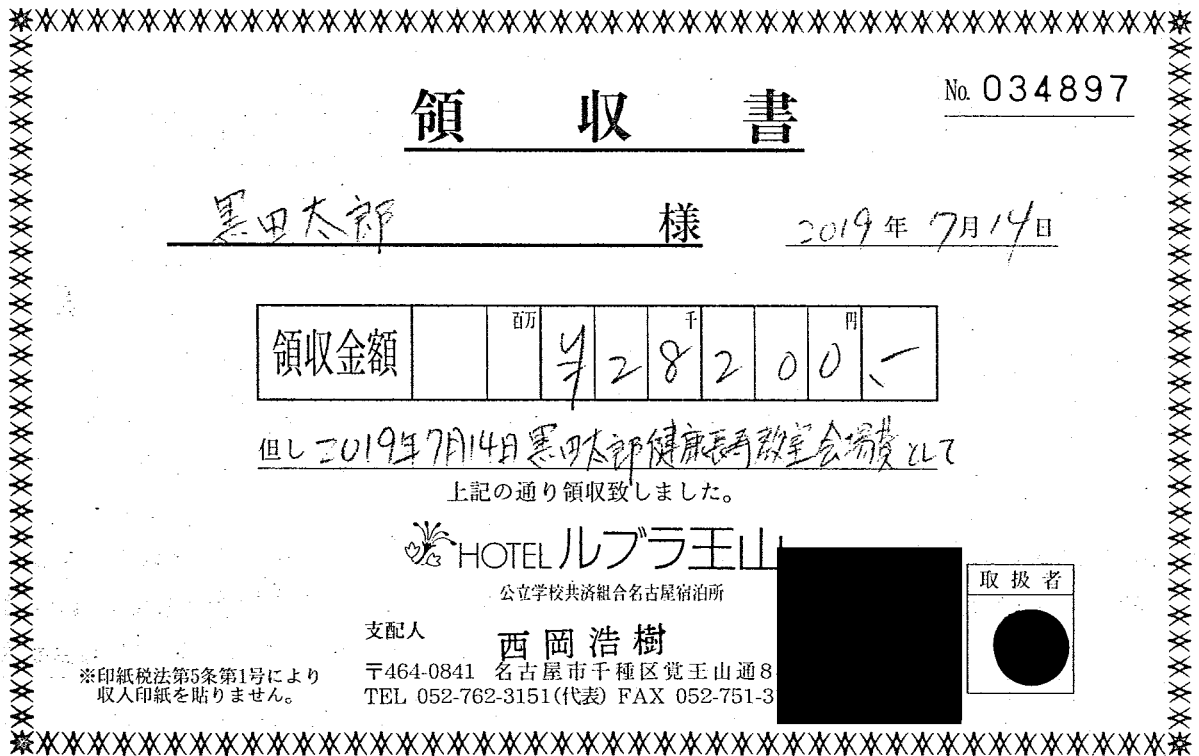 領収書
No. 034897
黒田太郎 様
2019年7月14日
領収金額 百万 千 円
¥28200、-
但し 2019年7月14日黒田太郎健康長寿教室会場費として
上記の通り領収致しました。
HOTELルブラ王山
公立学校共済組合名古屋宿泊所
取扱者
支配人 西岡浩樹
〒464-0841 名古屋市千種区覚王山通8
TEL 052-762-3151(代表) FAX 052-751-3
※印紙税法第5条第1号により
収入印紙を貼りません。